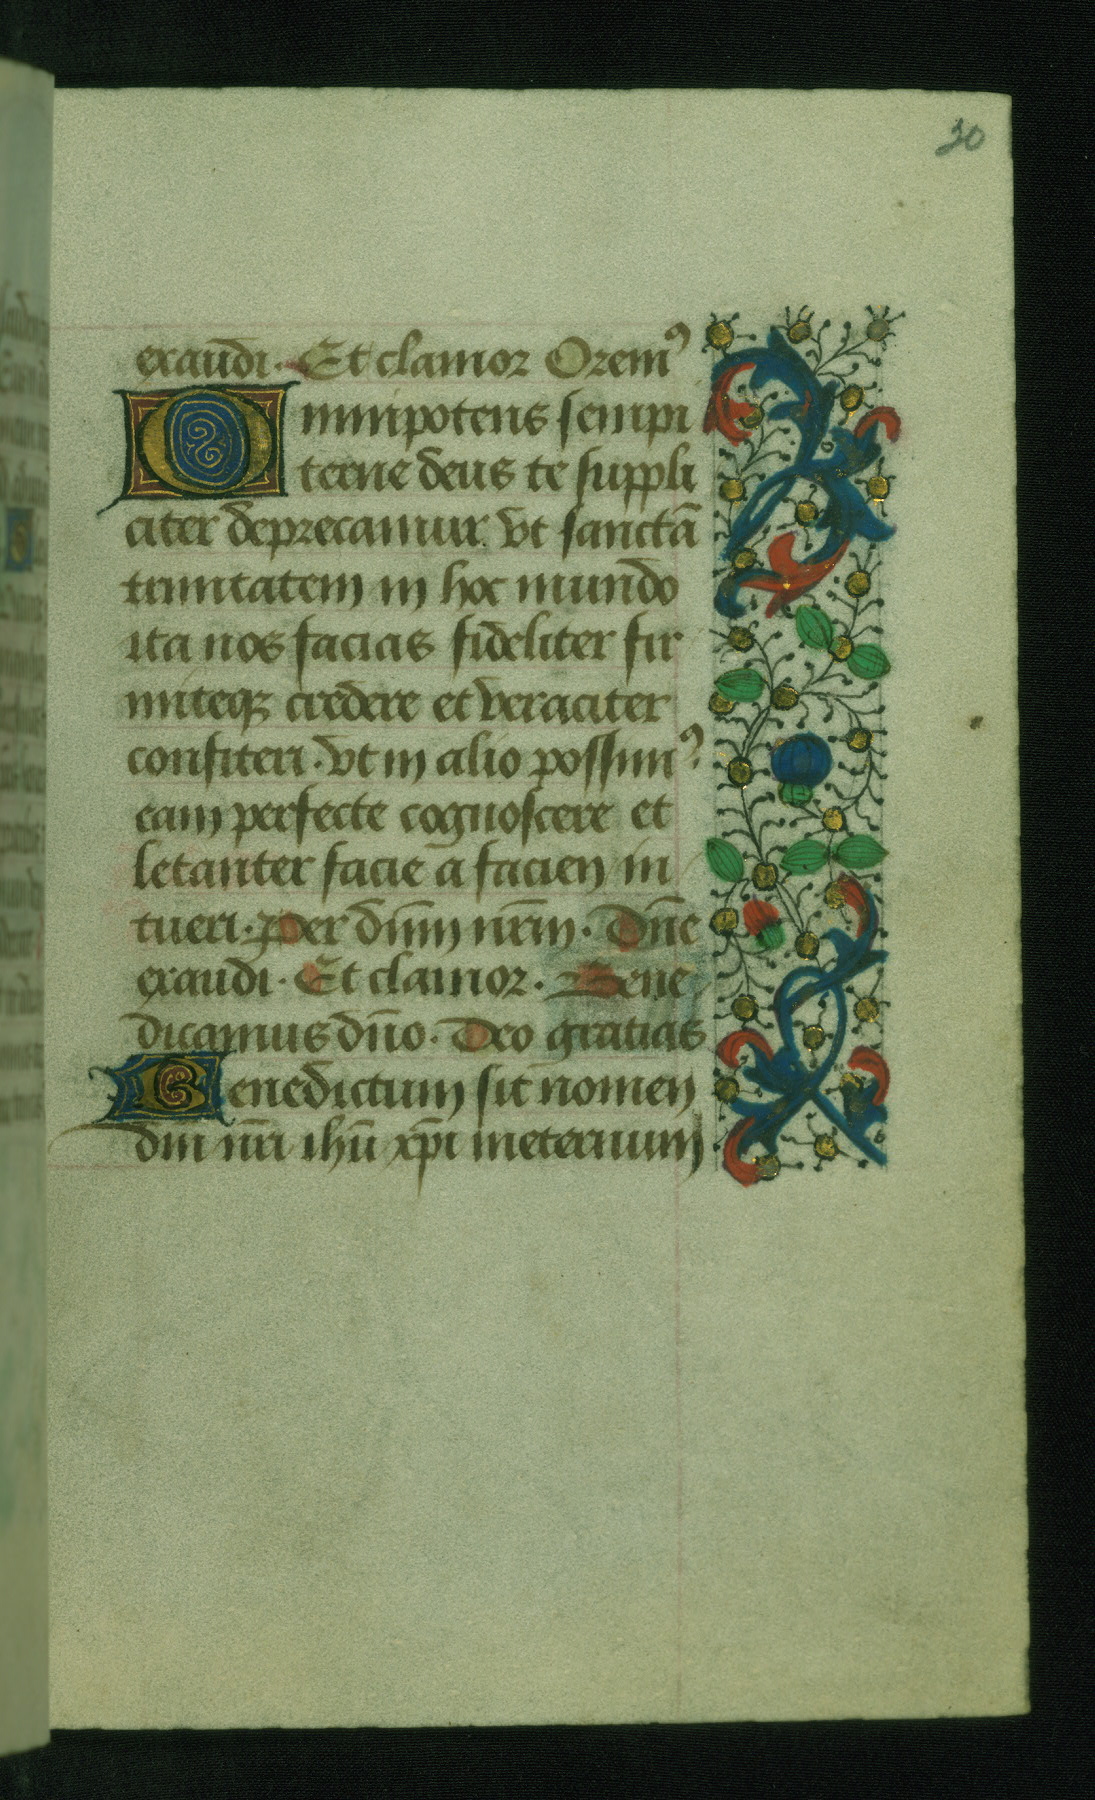 30
exaudi. Et clamor Orem⁹
Omnipotens sempi
terne deus te suppli
citer deprecamur. vt sanctā
trinitatem in hoc mundo
ita nos facias fideliter fir
miteqꝫ credere et veraciter
confiteri. vt in alio possim⁹
eam perfecte cognoscere et
letanter facie a facien in
tueri. Per dn̄m nr̄m. Dn̄e
exaudi. Et clamor. Bene
dicamus dn̄o. Deo gratias
Benedictum sit nomen
dni nr̄i ihū xp̄i ineternum